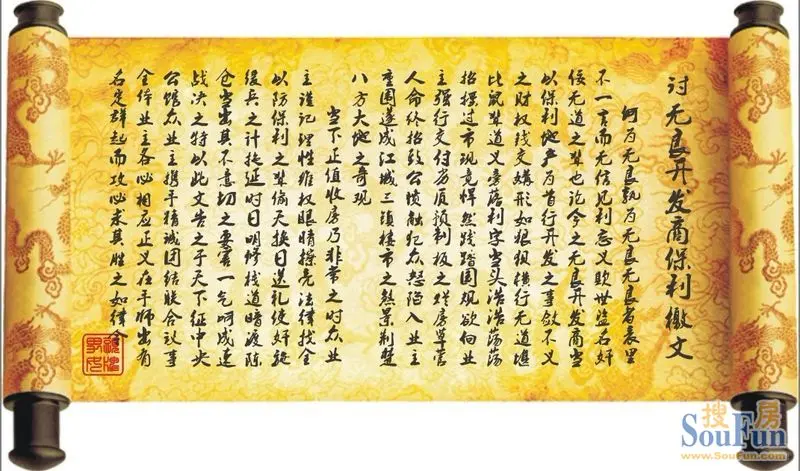 讨无良开发商保利檄文
何为无良孰为无良无良者表里
不一言而无信见利忘义欺世盗名奸
佞无道之辈也论今之无良开发商当
以保利地产为首行开发之事敛不义
之财权钱交媾形如狼狈横行无道堪
比鼠辈道义旁落利字当头浩浩荡荡
招摇过市现竟悍然践踏国规欲向业
主强行交付劣质预制板之烂房草菅
人命终招致公愤触犯众怒陷入业主
重围遂成江城三镇楼市之煞景荆楚
八方大地之奇观
当下正值收房乃非常之时众业
主谨记理性维权眼睛擦亮法律找全
以防保利之辈偷天换日送礼使奸施
缓兵之计拖延时日明修栈道暗渡陈
仓当出其不意切之要害一气呵成速
战决之特以此文告之于天下征中央
公馆众业主携手精诚团结联合议事
全体业主各必相应正义在手师出有
名定群起而攻必求其胜之如律令
搜房
SouFun
www.SouFun.com